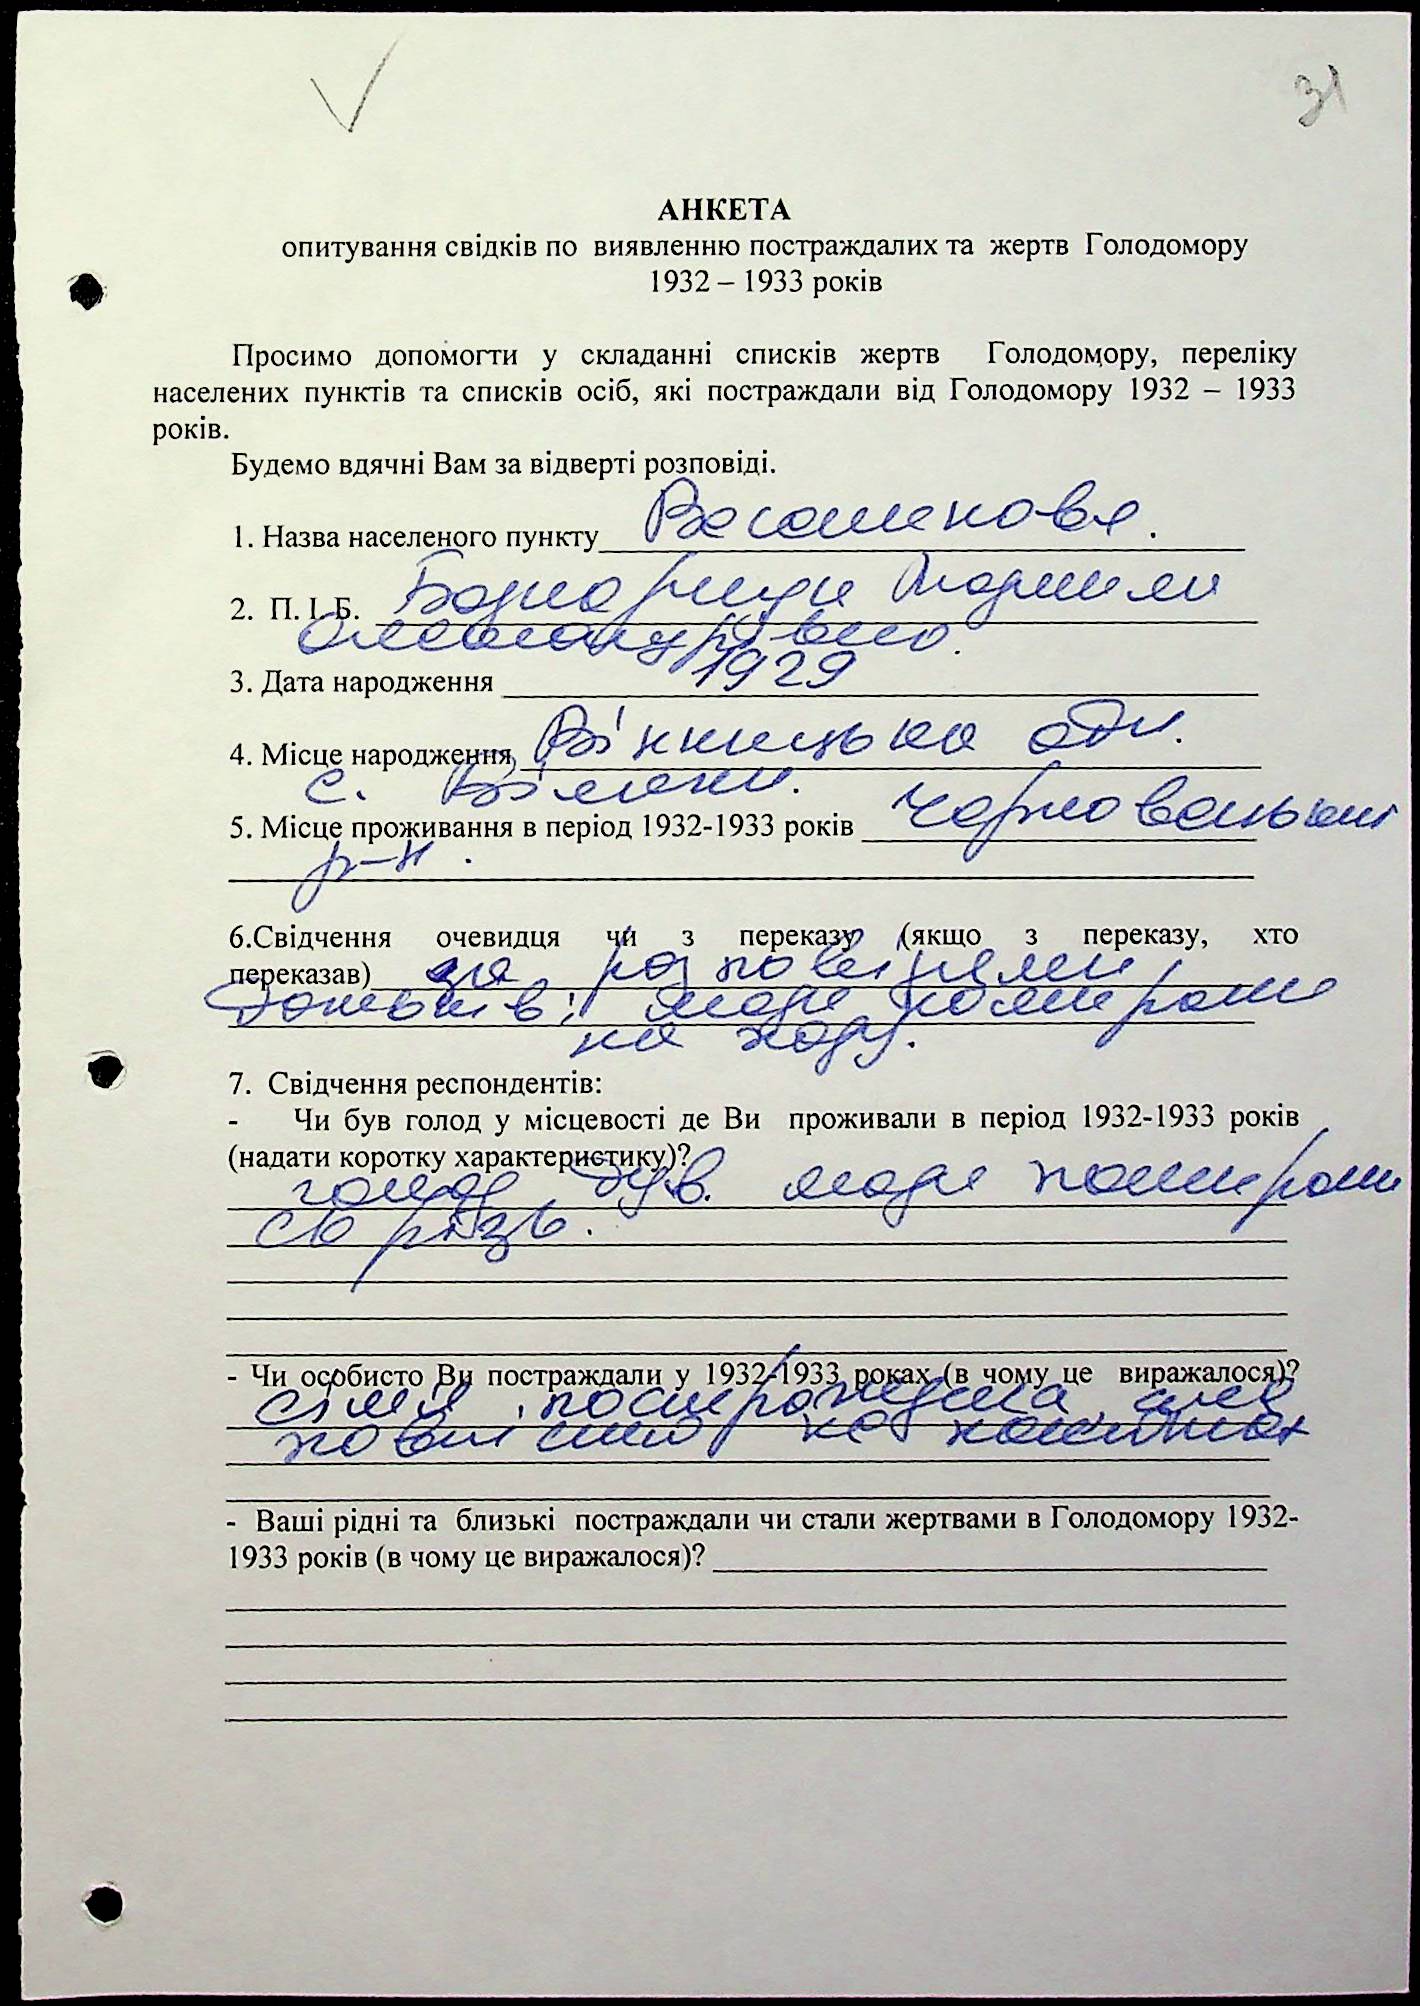 31
АНКЕТА
опитування свідків по виявленню постраждалих та жертв Голодомору
1932 – 1933 років
Просимо допомогти у складанні списків жертв Голодомору, переліку
населених пунктів та списків осіб, які постраждали від Голодомору 1932 – 1933
років.
Будемо вдячні Вам за відверті розповіді.
1. Назва населеного пункту
2. П. І. Б. Людмили
Олександрівна.
3. Дата народження 1929
4. Місце народження Вінницька обл.
с.
5. Місце проживання в період 1932-1933 років
р-н.
6.Свідчення очевидця чи з переказу (якщо з переказу, хто
переказав) за розповідями
батьків: люди помирали
на ходу.
7. Свідчення респондентів:
- Чи був голод у місцевості де Ви проживали в період 1932-1933 років
(надати коротку характеристику)?
голод був. люди помирали
скрізь.
- Чи особисто Ви постраждали у 1932-1933 роках (в чому це виражалося)?
сімя постраждала
- Ваші рідні та близькі постраждали чи стали жертвами в Голодомору 1932-
1933 років (в чому це виражалося)?